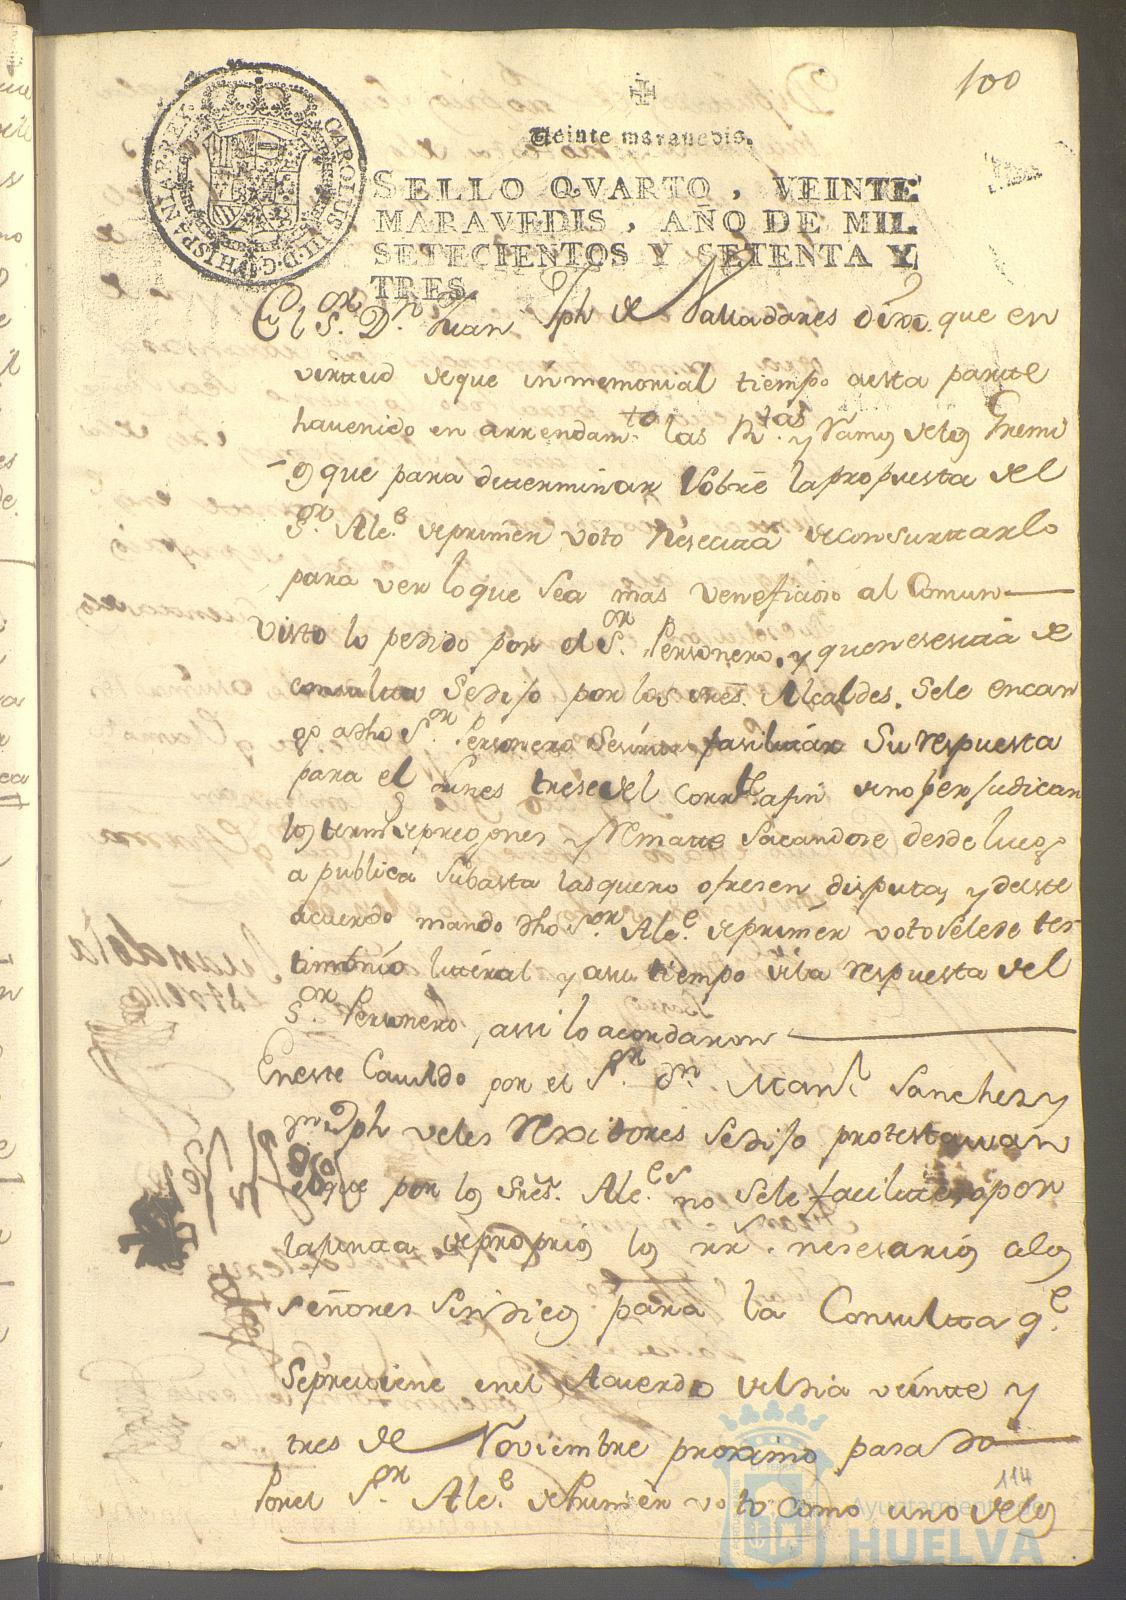 100
Veinte maravedis.
SELLO QVARTO, VEINTE
MARAVEDIS, AÑO DE MIL
SETECIENTOS Y SETENTA Y
TRES.
CAROLUS III D.G. HISPANIAR. REX
El Sor. Dn. Juan Jph de Valladares dixo que en
virttud de que inmemorial tiempo aesta partte
havenido en arrendamto. las Rtas. y Ramos de los Premi
os que para ditterminar sobre la propuesta del
Sor. Alce. de primer voto nesecitta de consulttarlo
para ver lo que sea mas veneficioso al Comun
Visto lo pedido por el Sor. Personero, y que nesesitta de
consultta Se dijo por los sres. Alcaldes. Sele encar
go adho Sor. Personero facilittar Su respuesta
para el Lunes trese del corrte. afin de no perjudicar
los term. de pregones y Rematte sacandose desde luego
a publica Subasta las que no ofresen disputa, y deeste
acuerdo mando dho Sor. Alce. de primer voto sele de tes
timonio litteral y asu tiempo de la respuesta del
Sor. Personero, assi lo acordaron
Eneste Cavildo por el Sor. Dn. Manl. Sanches y
Dn Jph Veles Rexidores se dijo protestavan
el que por los Sres. Alces. no sele facilitte, o por
la juntta de proprios los rrs. nesesarios alos
señores Sindicos para la Consultta qe.
Sepreviene enel Acuerdo del dia veintte y
tres de Noviembre proximo pasado
Porel Sor. Alce. de Primer voto como uno de los
114
Ayuntamiento de
HUELVA